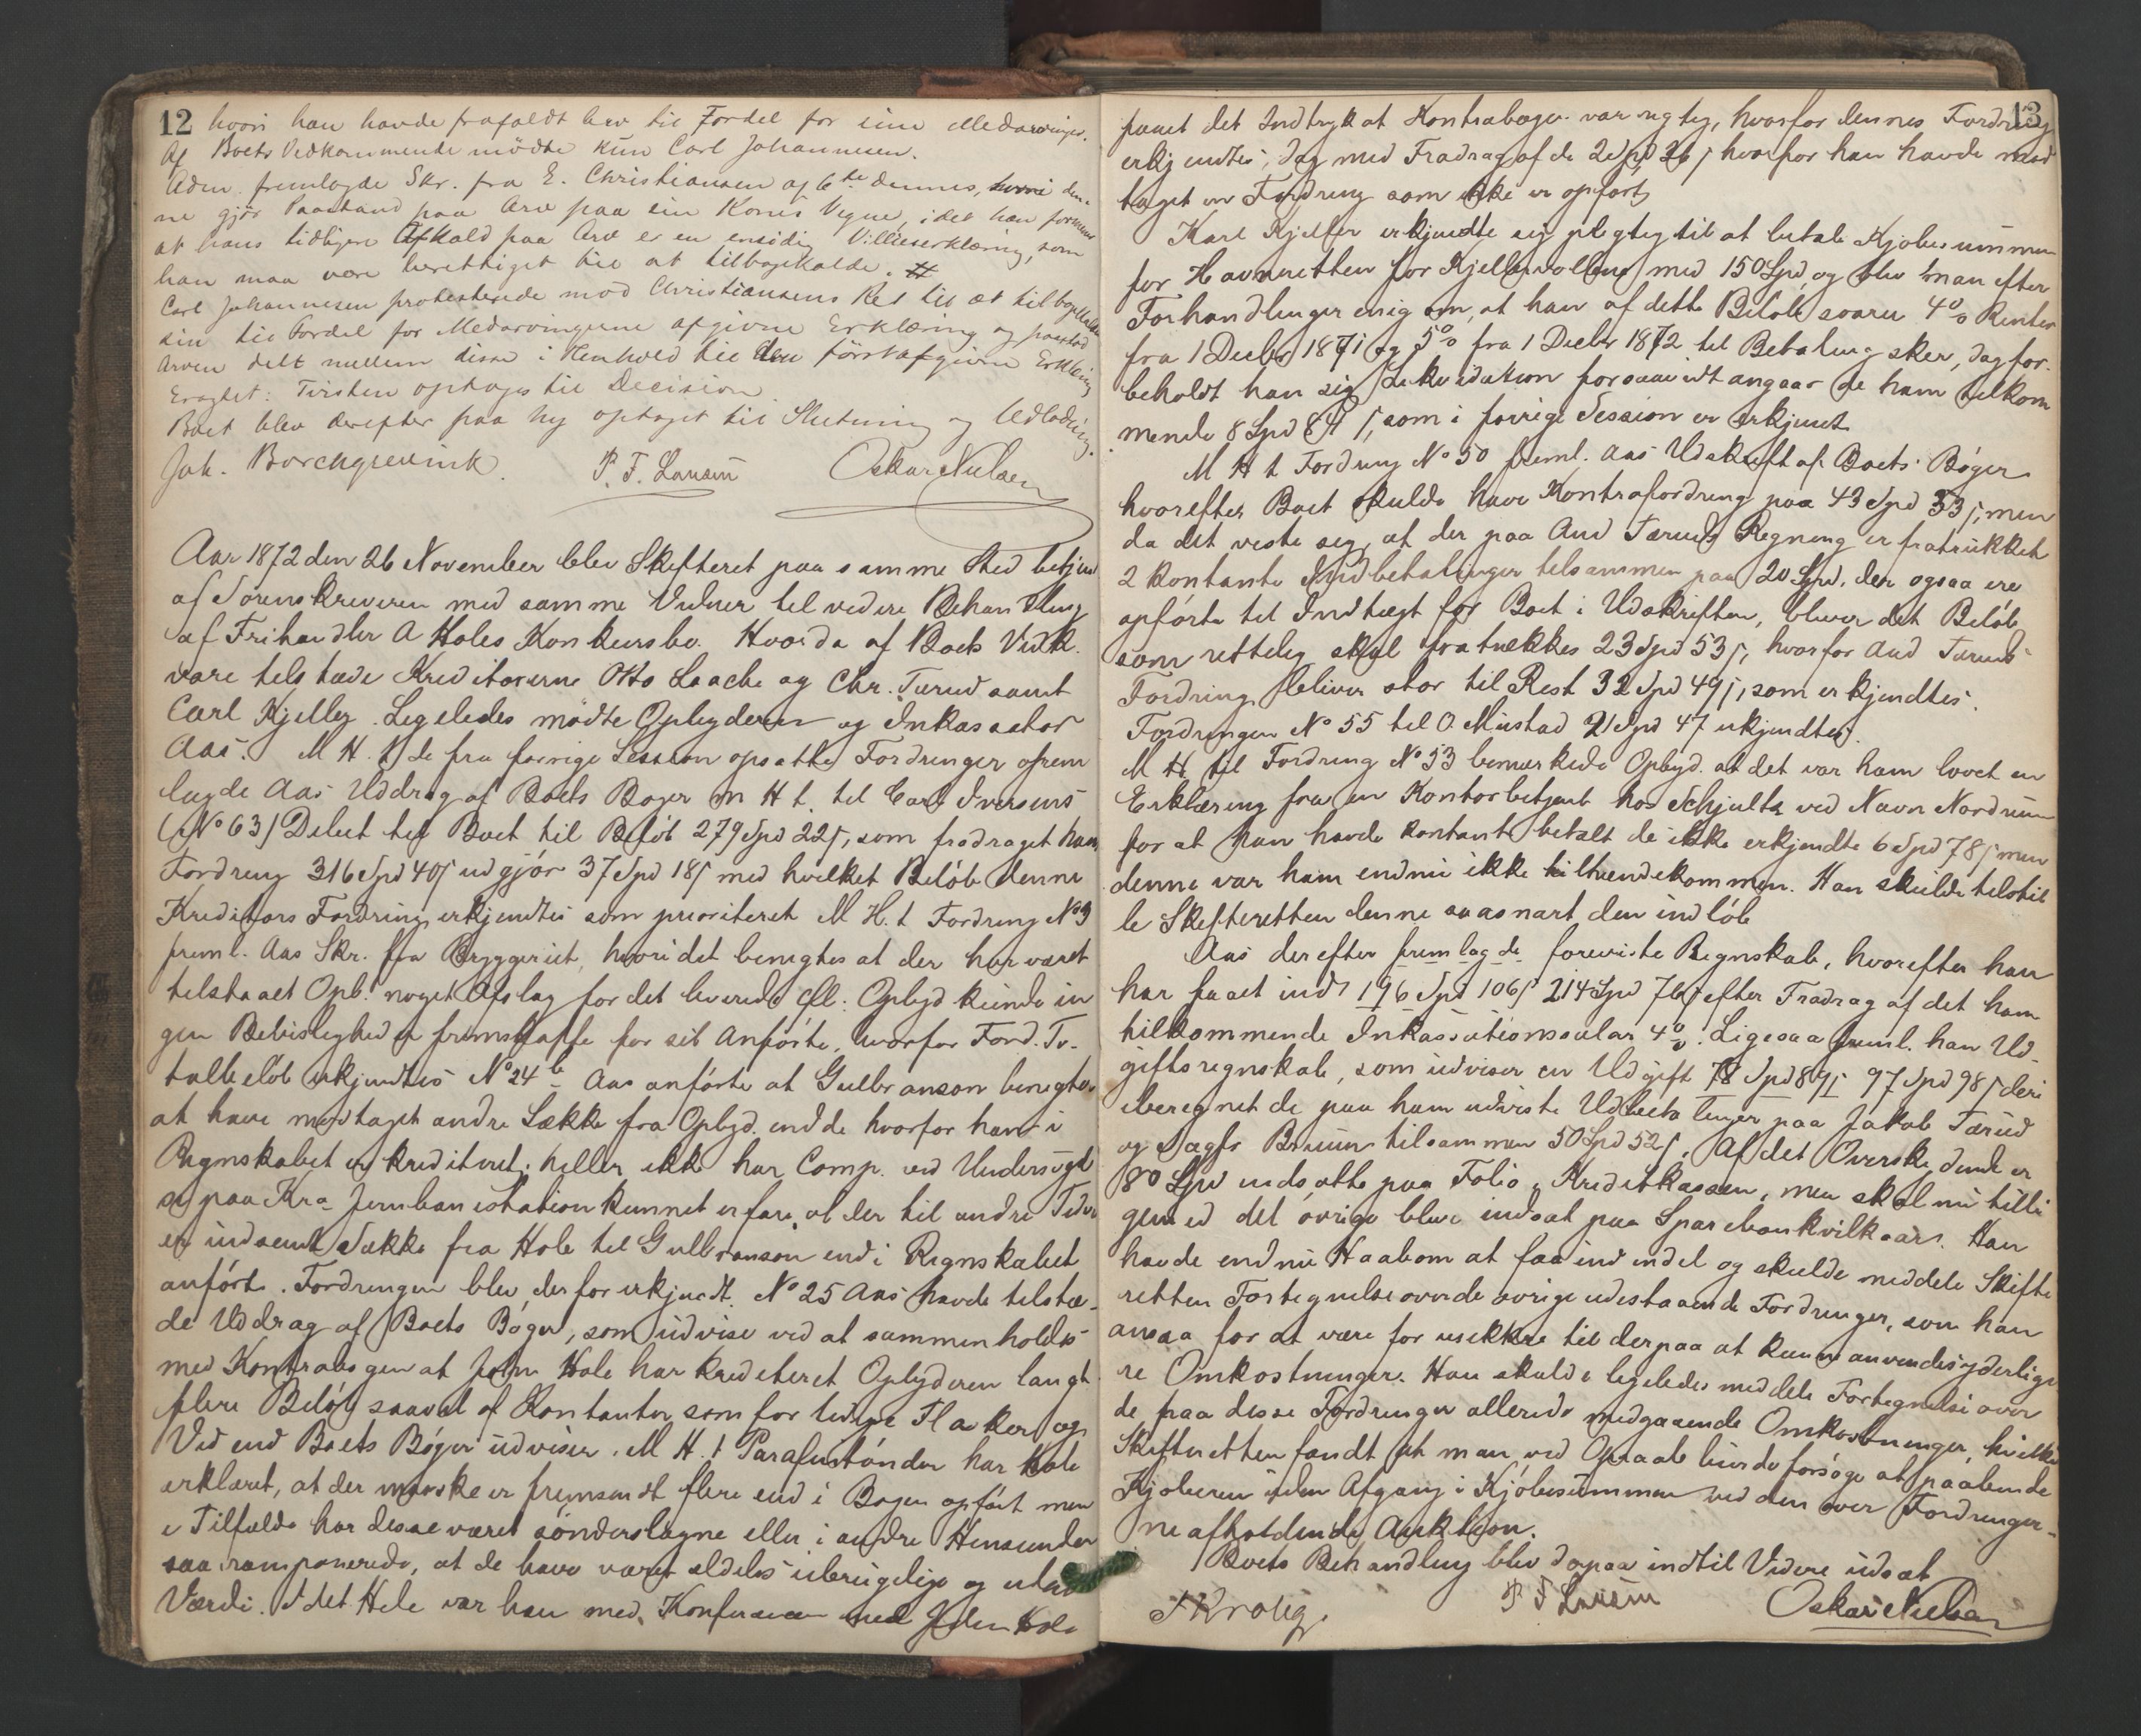 12 hvori han havde frafaldt Arv til Fordel for sine Medarvinger.
Af Boets Vedkommende mödte kun Carl Johannesen.
Adm. fremlagde Skr. fra E. Christiansen af 6te dennes, hvori den-
ne gjör Paastand paa Arv paa sin Kones Vegne, idet han formener
at hans tidligere Afkald paa Arv er en ensidig Villieserklæring, som
han maa være berettiget til at tilbagekalde.
Carl Johannesen protesterede mod Christiansens Ret til at tilbagekalde
sin til Fordel for Medarvingerne afgivne Erklæring og paastod
Arven delt mellem disse i Henhold til den först afgivne Erklæring
Eragtet: Tvisten optages til Decision
Boet blev derefter paa ny optaget til Slutning og Udlodning.
Joh. Borchgrevink. P. F. Larsen Oskar Nielsen
Aar 1872 den 26 November blev Skifteret paa samme Sted betjent
af Sorenskriveren med samme Vidner til videre Behandling
af Frihandler A Holes Konkursbo. Hvorda af Boets Vedk.
vare tilstede Kreditorerne Otto Laache og Chr. Tærud samt
Carl Kjelley. Ligeledes mödte Opbyderen og Inkassator
Aas. M H. t de fra forrige Session opsatte Fordringer frem
lagde Aas Uddrag af Boets Böger m H t. til Carl Iversens
(No 63) Debet til Boet til Belöb 279 Spd 22 s, som fradraget hans
Fordring 316 Spd 40 s udgjör 37 Spd 18 s med hvilket Belöb denne
Kreditors Fordring erkjendtes som prioriteret M H. t Fordring No 9
freml. Aas Skr. fra Bryggeriet, hvori det benegtes at der har været
tilstaaet Opb. noget Afslag for det leverede Øl: Opbyd kunde in
gen Bevisligheder fremskaffe for sit Anförte, hvorfor Ford. To-
talbelöb erkjendtes No 24 b Aas anförte at Gulbranson benegter
at have modtaget andre Sække fra Opbyd. end de hvorfor han i
Regnskabet er krediteret; heller ikke har Comp. ved Undersögel
se paa Kra Jernbanestation kunnet erfare, at der til andre Tider
er indsendt Sække fra Hole til Gulbranson end i Regnskabet
anförte. Fordringen blev derfor erkjendt. No 25 Aas havde tilstæ-
de Uddrag af Boets Böger, som udviser ved at sammenholdes
med Kontrabogen at John Hole har krediteret Opbyderen langt
flere Belöb saavel af Kontanter som for ledige Flasker og
Ved end Boets Böger udviser. M H. t Parafintönder har Hole
erklæret, at der maaske er fremsendt flere end i Bogen opfört men
i Tilfælde har disse været sönderslagne eller i andre Henseender
saa ramponerede, at de have været aldeles ubrugelige og uden
Værdi. I det Hele var han med Konferancen med John Hole
13
faaet det Indtryk at Kontrabogen var rigtig, hvorfor dennes Fordring
erkjendtes, dog med Fradrag af de 2 Spd 26 s hvorfor han havde mod
taget en Fordring som ikke er opfört
Karl Kjelley erkjendte sig pligtig til at betale Kjöbesummen
for Havneretten for Kjelleyvollene med 150 Spd, og blev man efter
Forhandlinger enig om, at han af dette Belöb svarer 4% Renter
fra 1 Decbr 1871 og 5% fra 1 Decbr 1872 til Betaling sker, dog for-
beholdt han sig Likvidation forsaavidt angaar de ham tilkom
mende 8 Spd 8 s, som i forrige Session er erkjendt
M H t Fordring No 50 freml. Aas Udskrift af Boets Böger
hvorefter Boet skulde have Kontrafordring paa 43 Spd 53 s, men
da det viste sig, at der paa And Tæruds Regning er fratrukket
2 kontante Indbetalinger tilsammen paa 20 Spd, der ogsaa ere
opförte til Indtægt for Boet i Udskriften, bliver det Belöb
som rettelig skal fratrækkes 23 Spd 53 s, hvorfor And Tæruds
Fordring bliver stor til Rest 32 Spd 49 s, som erkjendtes.
Fordringen No 55 til O Mustad 21 Spd 47 erkjendtes.
M H til Fordring No 53 bemærkede Opbyd. at det var ham lovet en
Erklæring fra en Kontorbetjent hos Schjultz ved Navn Nordrum
for at han havde kontant betalt de ikke erkjendte 6 Spd 78 s men
denne var ham endnu ikke tilhændekommen. Han skulde tilstil
le Skifteretten denne saasnart den indlöb
Aas derefter fremlagde foreviste Regnskab, hvorefter han
har faaet ind 196 Spd 106 s 214 Spd 76 s efter Fradrag af det ham
tilkommende Inkassationssalær 4%. Ligesaa freml. han Ud-
giftsregnskab, som udviser en Udgift 78 Spd 89 s 97 Spd 98 s deri
iberegnet de paa ham udviste Udbetalinger paa Jakob Tærud
og Sagfr Bruun tilsammen 50 Spd 52 s. Af det Overskydende er
80 Spd indsatte paa Folio i Kreditkassen, men skal nu tilli
gemed det övrige blive indsat paa Sparebankvilkaar. Han
havde endnu Haabom at faa ind endel og skulde meddele Skifte
retten Fortegnelse over de övrige udestaaende Fordringer, som han
ansaa for at være for usikkre til derpaa at kunne anvendes yderlige
re Omkostninger. Han skulde ligeledes meddele Fortegnelse over
de paa disse Fordringer allerede medgaaende Omkostninger, hvilke
Skifteretten fandt at man ved Opraab burde forsöge at paabyrde
Kjöberen uden Afgang i Kjöbesummen ved den over Fordringer-
ne afholdende Auktion.
Boets Behandling blev derpaa indtil Videre udsat
P F Larsen Oskar Nielsen